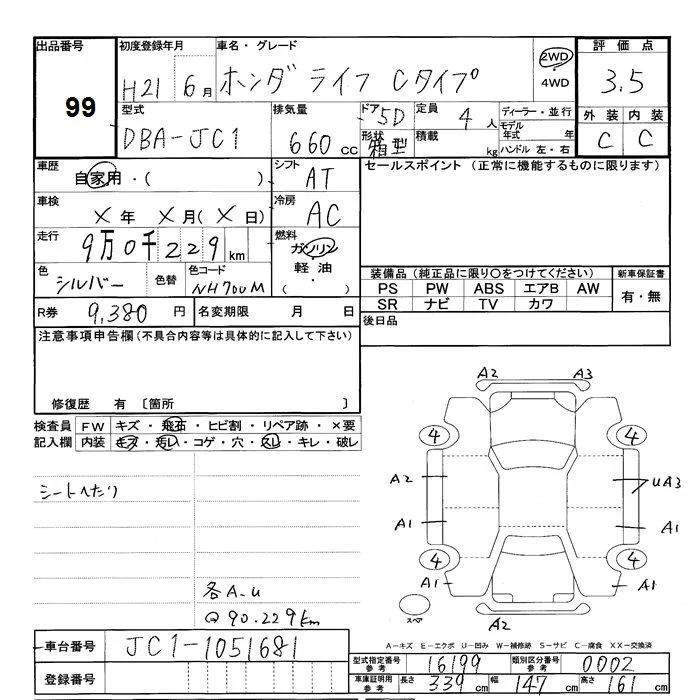 出品番号 初度登録年月 車名・グレード 評価点
99 H21 6月 ホンダ ライフ Cタイプ 2WD 4WD 3.5
型式 排気量 ドア 5D 定員 4人 ディーラー・並行 外装 内装
DBA-JC1 660cc 形状 箱型 積載 kg モデル年式 年 C C
ハンドル 左・右
車歴 自家用・( ) シフト AT セールスポイント (正常に機能するものに限ります)
車検 X年 X月(X日) 冷房 AC
走行 9万0千229km 燃料 ガソリン
軽油
・
( )
色 シルバー 色替 色コード NH700M
装備品(純正品に限り○をつけてください) 新車保証書
PS PW ABS エアB AW 有・無
SR ナビ TV カワ
R券 9,380円 名変期限 月 日 後日品
注意事項申告欄(不具合内容等は具体的に記入して下さい)
修復歴 有 〔箇所 〕
検査員 FW キズ・飛石・ヒビ割・リペア跡・×要
記入欄 内装 キズ・汚れ・コゲ・穴・スレ・キレ・破レ
シートへたり
各A.U
@90.229km
A2 A3
4 4
A2 UA3
A1 A1
4 4
A1 A1
スペア A2
A-キズ E-エクボ U-凹み W-補修跡 S-サビ C-腐食 XX-交換済
車台番号 JC1-1051681
登録番号
型式指定番号 参考 16199 類別区分番号 参考 0002
車庫証明用 参考 長さ 339cm 幅 147cm 高さ 161cm